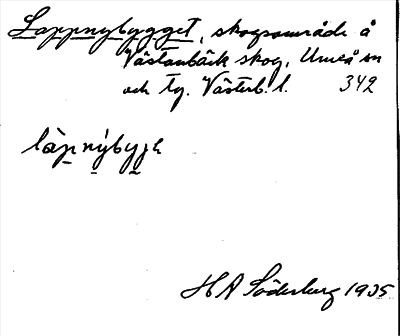 Lappnybygget, skogsområde å
Västanbäck skog, Umeå sn
och tg. Västerb. l. 342
làpnýbyg̣ɛ
H A Söderberg 1935